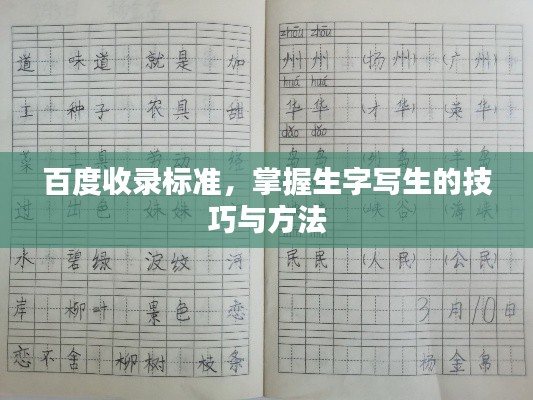 百度收录标准，掌握生字写生的技
巧与方法
道 味道 就是 加
工 种子 农具 甜
菜 劳动 经
过 出色
碧绿 波纹 河
岸 柳叶 景色 恋
恋不舍 柳树 枝条
zhōu zhōu
州 州 (扬州) (广州)
huá huá
华 华 (才华) (英华)
dǎo dǎo
岛 岛
(峡谷) (海峡)
民 民 (人民) (公民)
3月10日
杨金帛